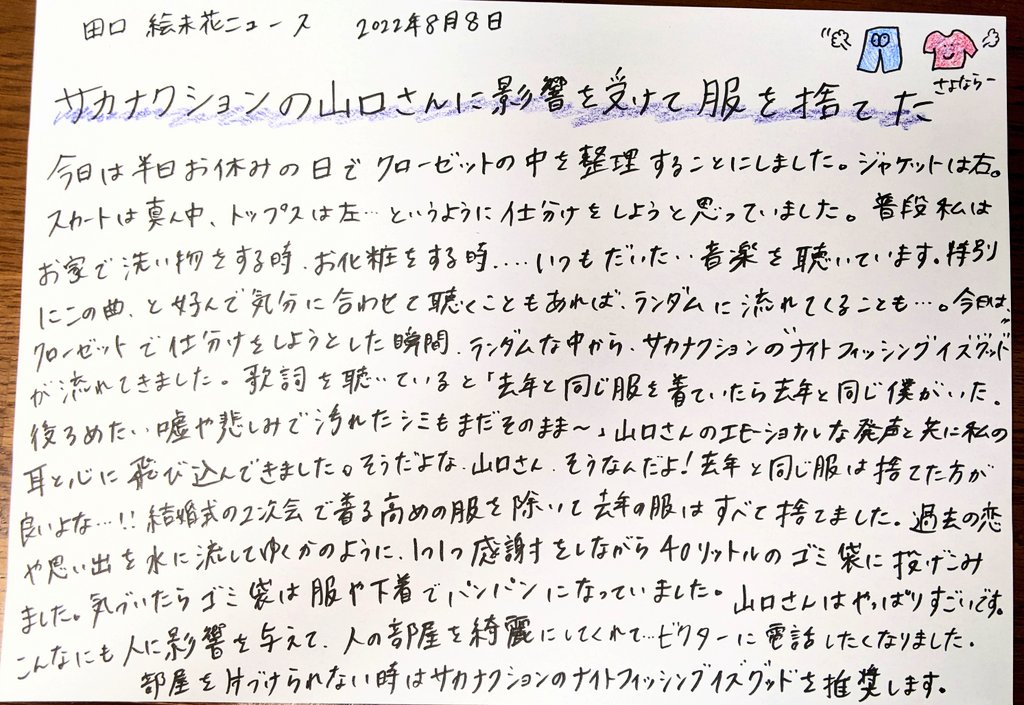 田口 絵未花ニュース 2022年8月8日
さよならー
サカナクションの山口さんに影響を受けて服を捨てた
今日は半日お休みの日でクローゼットの中を整理することにしました。ジャケットは右。
スカートは真ん中、トップスは左…というように仕分けをしようと思っていました。普段私は
お家で洗い物をする時、お化粧をする時、…いつもだいたい音楽を聴いています。特別
にこの曲、と好んで気分に合わせて聴くこともあれば、ランダムに流れてくることも…。今日は、
クローゼットで仕分けをしようとした瞬間、ランダムな中から、サカナクションのナイトフィッシングイズグッド
が流れてきました。歌詞を聴いていると「去年と同じ服を着ていたら去年と同じ僕がいた。
後ろめたい嘘や悲しみで汚れたシミもまだそのまま〜」山口さんのエモーショナルな発声と共に私の
耳と心に飛び込んできました。そうだよな、山口さん、そうなんだよ!去年と同じ服は捨てた方が
良いよな…!!結婚式の2次会で着る高めの服を除いて去年の服はすべて捨てました。過去の恋
や思い出を水に流してゆくかのように、1つ1つ感謝をしながら40リットルのゴミ袋に投げこみ
ました。気づいたらゴミ袋は服や下着でパンパンになっていました。山口さんはやっぱりすごいです。
こんなにも人に影響を与えて、人の部屋を綺麗にしてくれて…ビクターに電話したくなりました。
部屋を片づけられない時はサカナクションのナイトフィッシングイズグッドを推奨します。